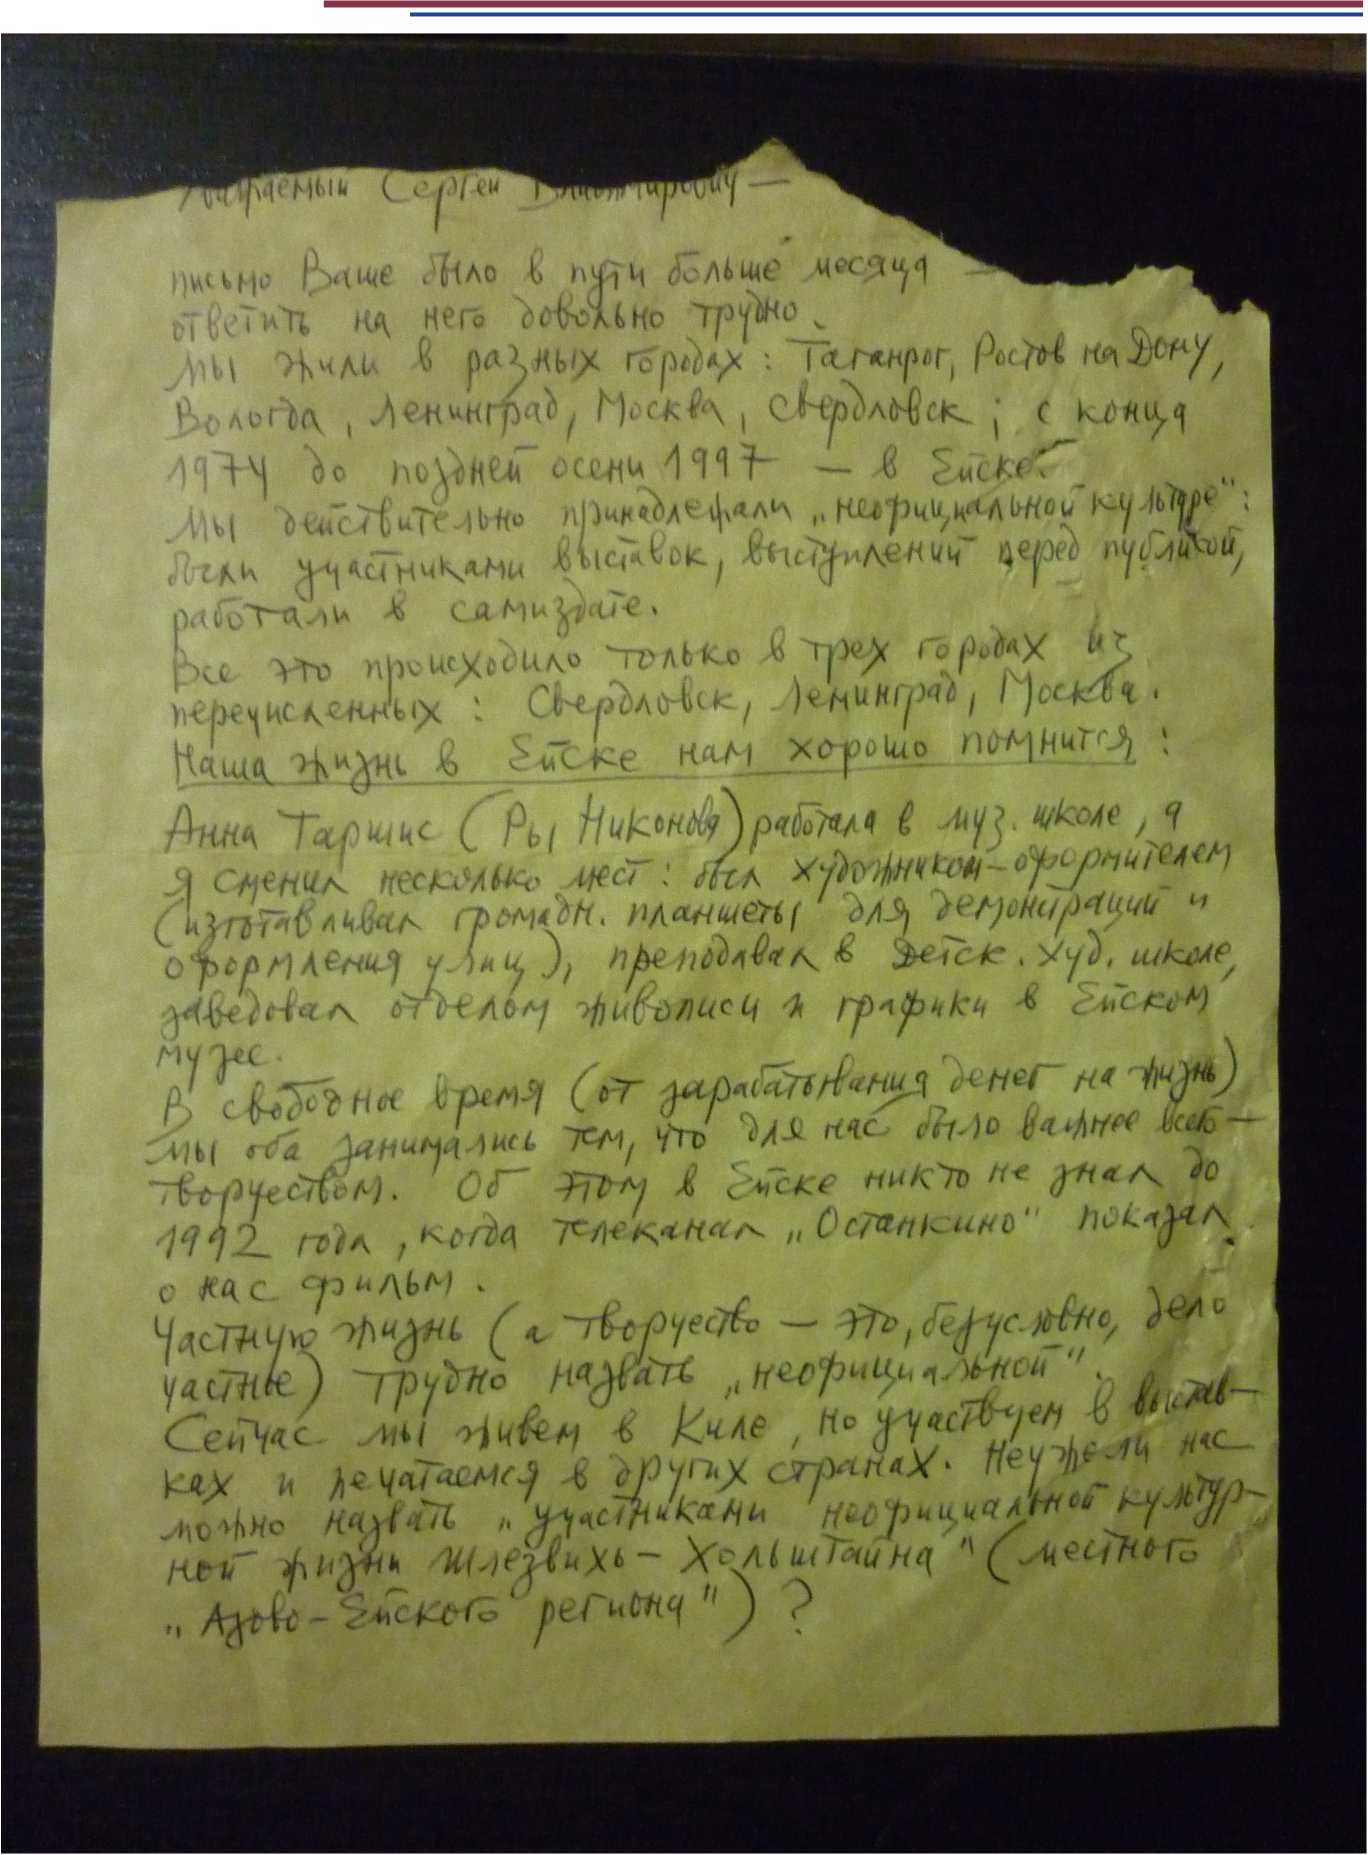 Уважаемый Сергей Владимирович —
письмо Ваше было в пути больше месяца —
ответить на него довольно трудно.
Мы жили в разных городах: Таганрог, Ростов на Дону,
Вологда, Ленинград, Москва, Свердловск; с конца
1974 до поздней осени 1997 — в Ейске.
Мы действительно принадлежали „неофициальной культуре":
были участниками выставок, выступлений перед публикой,
работали в самиздате.
Все это происходило только в трех городах из
перечисленных: Свердловск, Ленинград, Москва.
Наша жизнь в Ейске нам хорошо помнится:
Анна Таршис (Ры Никонова) работала в муз. школе, а
я сменил несколько мест: был художником-оформителем
(изготавливал громадн. планшеты для демонстраций и
оформления улиц), преподавал в Детск. худ. школе,
заведовал отделом живописи и графики в Ейском
музее.
В свободное время (от зарабатывания денег на жизнь)
мы оба занимались тем, что для нас было важнее всего —
творчеством. Об этом в Ейске никто не знал до
1992 года, когда телеканал „Останкино" показал
о нас фильм.
Частную жизнь (а творчество — это, безусловно, дело
частное) трудно назвать „неофициальной".
Сейчас мы живем в Киле, но участвуем в выстав-
ках и печатаемся в других странах. Неужели нас
можно назвать „участниками неофициальной культур-
ной жизни Шлезвихь-Хольштайна" (местного
„Азово-Ейского региона")?